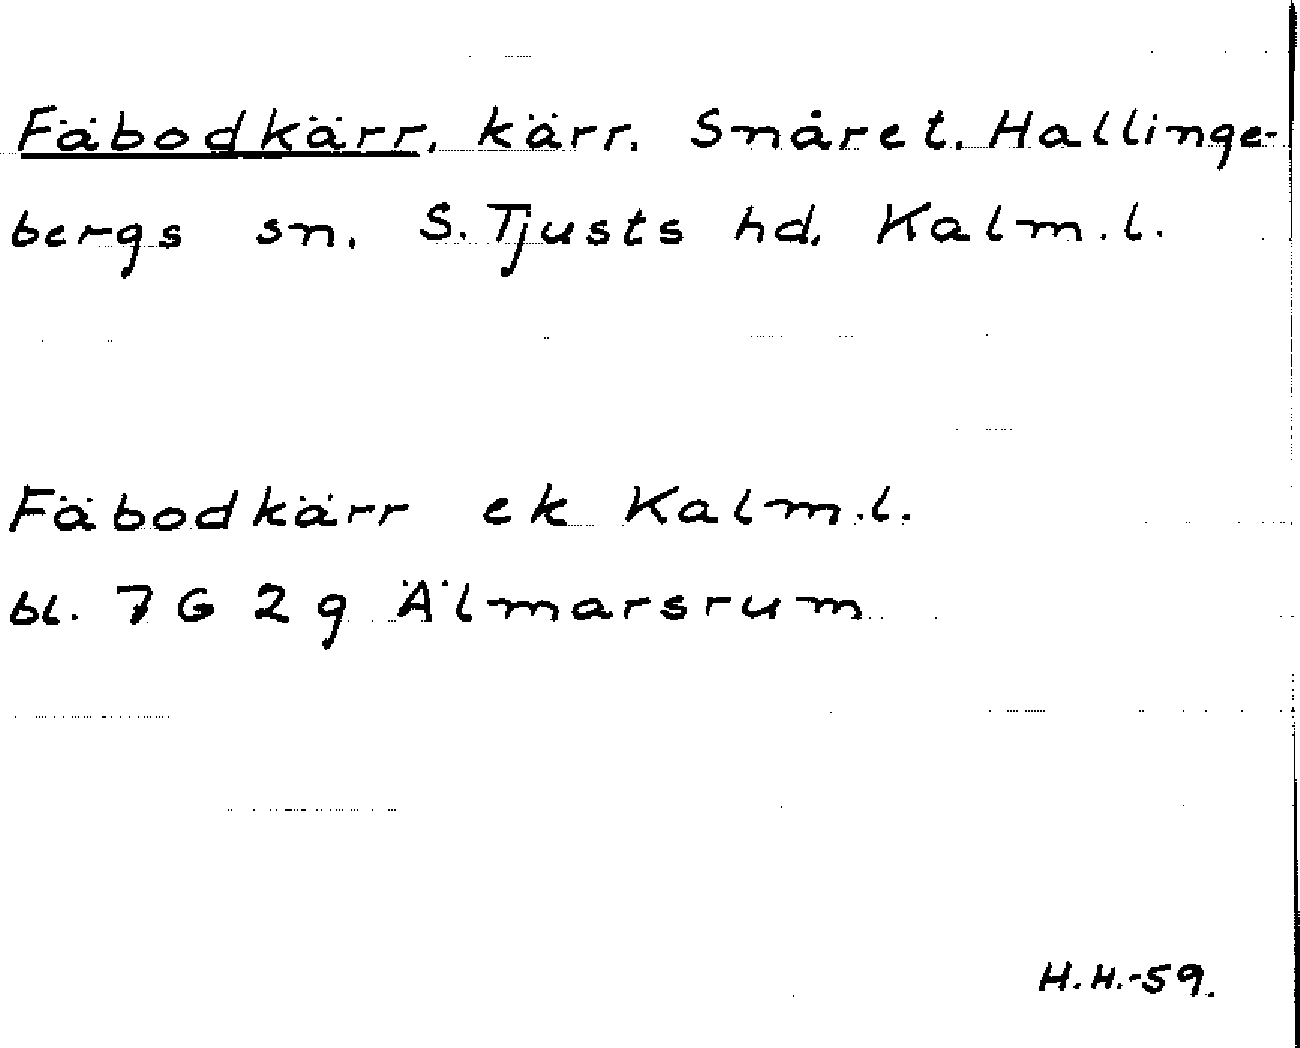 Fäbodkärr, kärr. Snåret. Hallinge-
bergs sn. S. Tjusts hd. Kalm. l.
Fäbodkärr ek Kalm. l.
bl. 7 G 2 g Älmarsrum
H. H.-59.